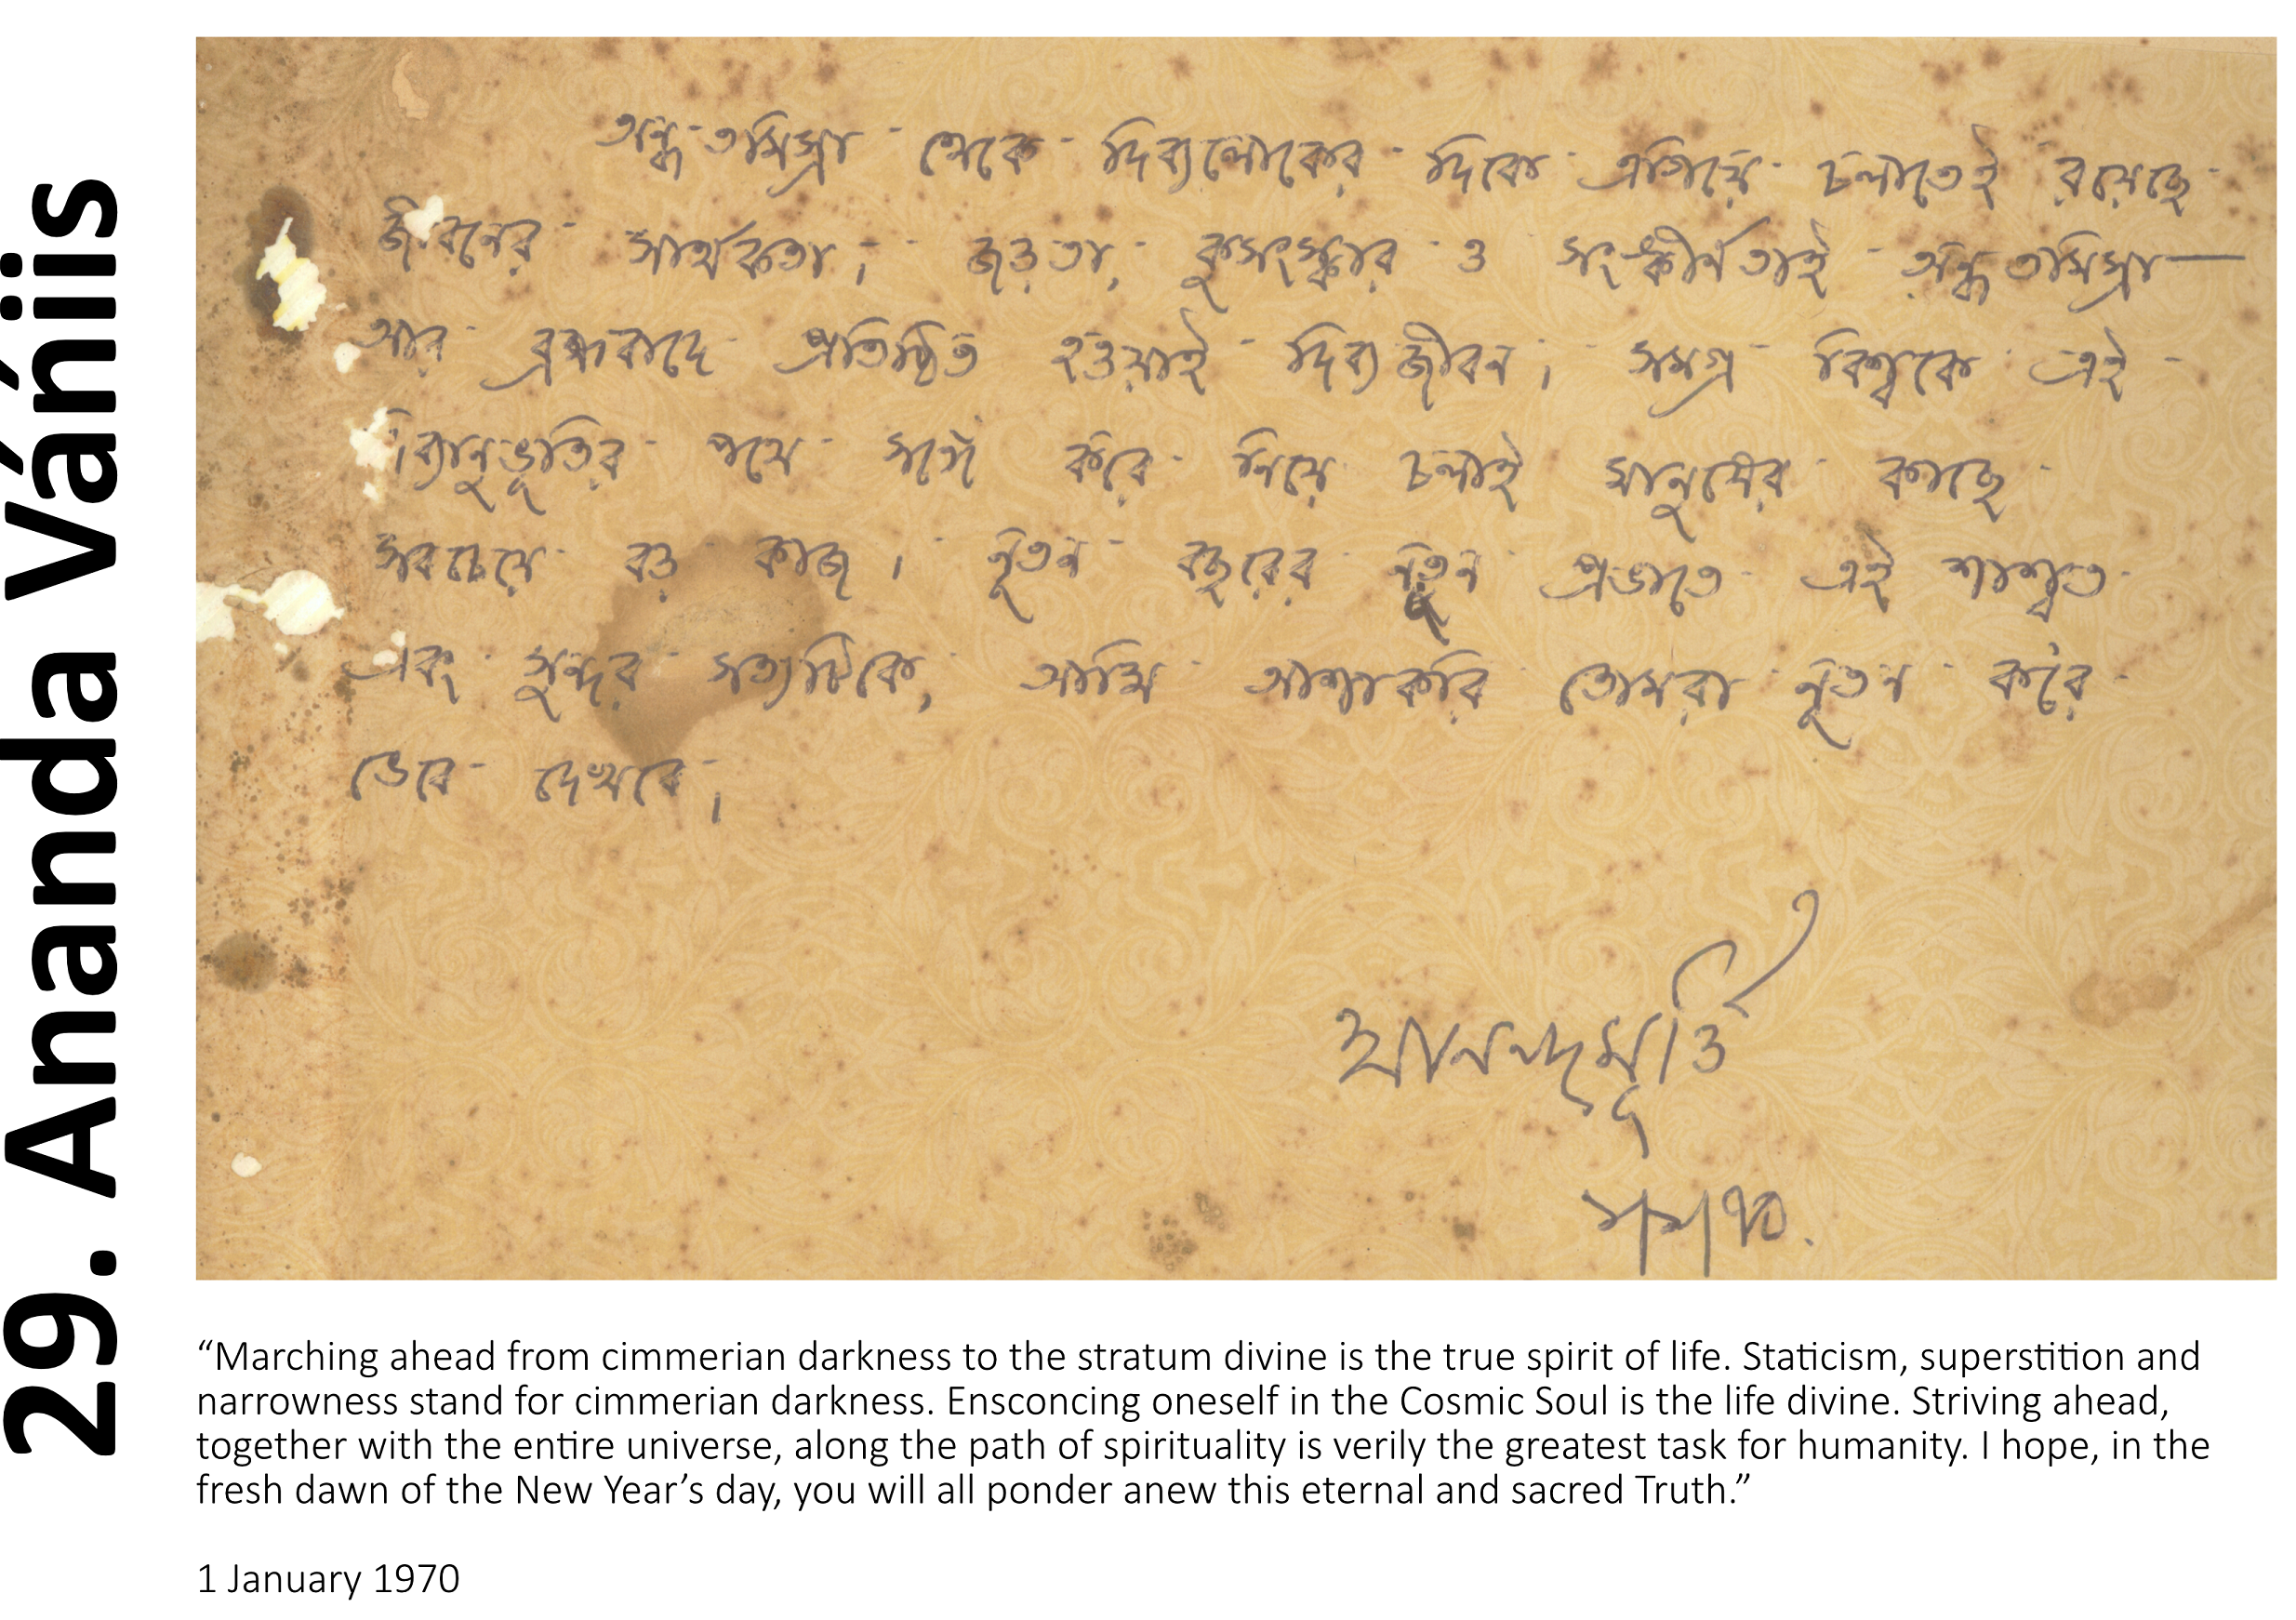 29. Ananda Vániis
অন্ধতমিস্রা থেকে দিব্যলোকের দিকে এগিয়ে চলাতেই রয়েছে
জীবনের সার্থকতা। জড়তা, কুসংস্কার ও সংঙ্কীর্ণতাই অন্ধতমিস্রা—
আর ব্রহ্মবাদে প্রতিষ্ঠিত হওয়াই দিব্যজীবন। সমগ্র বিশ্বকে এই
দিব্যানুভূতির পথে সঙ্গে ক'রে নিয়ে চলাই মানুষের কাছে
সবচেয়ে বড় কাজ। নূতন বছরের নূতন প্রভাতে এই শাশ্বত
এবং সুন্দর সত্যটিকে, আমি আশাকরি তোমরা নূতন ক'রে
ভেবে দেখবে।
আনন্দমূর্ত্তি
১/১/৭০.
“Marching ahead from cimmerian darkness to the stratum divine is the true spirit of life. Staticism, superstition and
narrowness stand for cimmerian darkness. Ensconcing oneself in the Cosmic Soul is the life divine. Striving ahead,
together with the entire universe, along the path of spirituality is verily the greatest task for humanity. I hope, in the
fresh dawn of the New Year’s day, you will all ponder anew this eternal and sacred Truth.”
1 January 1970